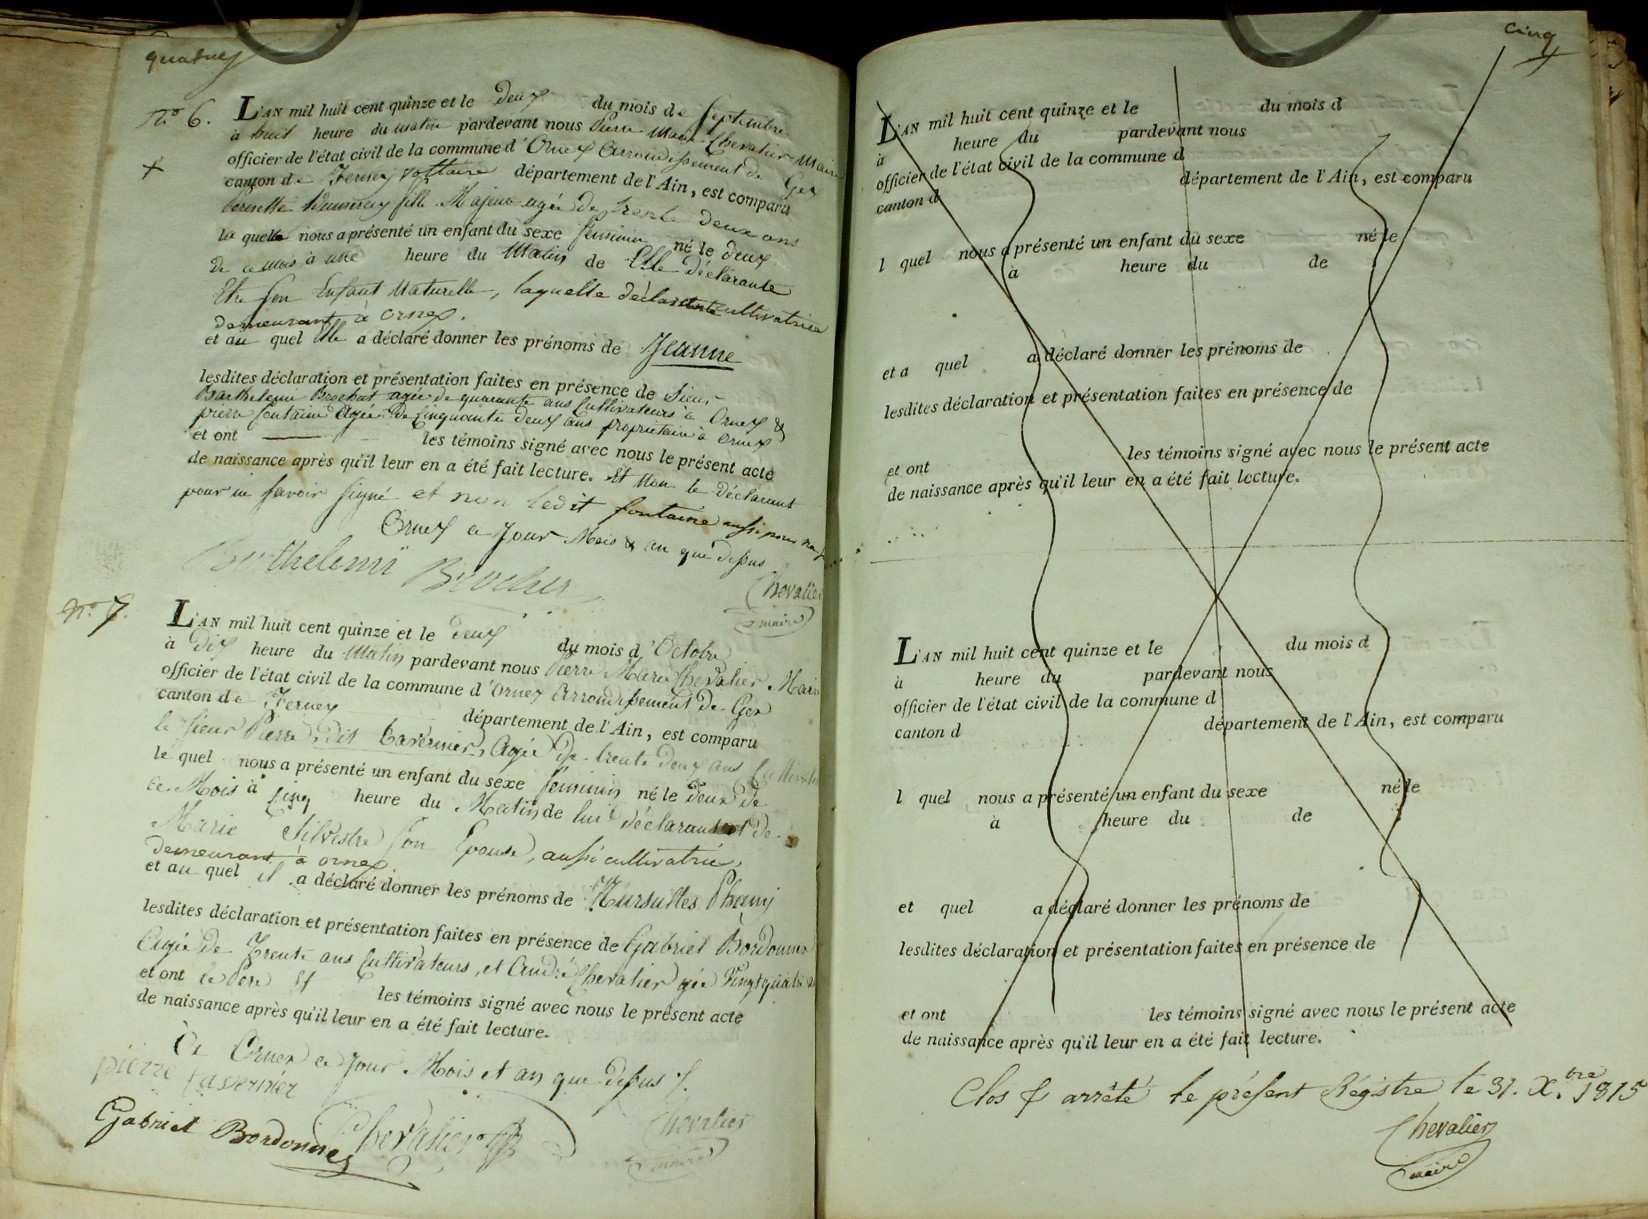 quatre
N.º 6.
L'AN mil huit cent quinze et le deux du mois de Septembre
à huit heure du matin pardevant nous Pierre Marie Chevalier Maire
officier de l'état civil de la commune d'Ornex arrondissement de Gex
canton de Ferney Voltaire département de l'Ain, est comparu
fille Majeur agée de trente deux ans
la quelle nous a présenté un enfant du sexe feminin né le deux
de ce mois à une heure du Matin de Elle déclarante
Etre son Enfant Naturelle, laquelle déclarante cultivatrice
demeurant à Ornex.
et au quel Elle a déclaré donner les prénoms de Jeanne
lesdites déclaration et présentation faites en présence de Sieur
Barthelemi Brochut agée de quarante ans Cultivateurs à Ornex &
pierre fontaine Agée de Cinquante deux ans propriétaire à Ornex
et ont les témoins signé avec nous le présent acte
de naissance après qu'il leur en a été fait lecture. et Non le déclarant
pour ne savoir signé et non ledit fontaine aussi pour
Ornex ce Jour Mois & an que dessus
Barthelemi Chevalier
maire
N.º 7.
L'AN mil huit cent quinze et le deux du mois d'Octobre
à dix heure du Matin pardevant nous Pierre Marie Chevalier Maire
officier de l'état civil de la commune d'Ornex arrondissement de Gex
canton de Ferney département de l'Ain, est comparu
le sieur Pierre dit Tavernier, Agée de trente deux ans
le quel nous a présenté un enfant du sexe feminin né le deux de
ce Mois à Cinq heure du Matin de lui déclarant et de
Marie Silvestre son Epouse, aussi cultivatrice,
demeurant à ornex
et au quel il a déclaré donner les prénoms de
lesdites déclaration et présentation faites en présence de Gabriel Bordonnes
Agée de Trente ans Cultivateurs, et André Chevalier
et ont ce Pere et les témoins signé avec nous le présent acte
de naissance après qu'il leur en a été fait lecture.
à Ornex ce Jour Mois et an que dessus
pierre tavernier
Gabriel Bordonnes Chevalier Chevalier
maire
cinq
L'AN mil huit cent quinze et le du mois d
à heure du pardevant nous
officier de l'état civil de la commune d
canton d département de l'Ain, est comparu
l quel nous a présenté un enfant du sexe né le
à heure du de
et a quel a déclaré donner les prénoms de
lesdites déclaration et présentation faites en présence de
et ont les témoins signé avec nous le présent acte
de naissance après qu'il leur en a été fait lecture.
L'AN mil huit cent quinze et le du mois d
à heure du pardevant nous
officier de l'état civil de la commune d
canton d département de l'Ain, est comparu
l quel nous a présenté un enfant du sexe né le
à heure du de
et quel a déclaré donner les prénoms de
lesdites déclaration et présentation faites en présence de
et ont les témoins signé avec nous le présent acte
de naissance après qu'il leur en a été fait lecture.
Clos & arrêté le présent Régistre le 31. X.bre 1815
Chevalier
maire